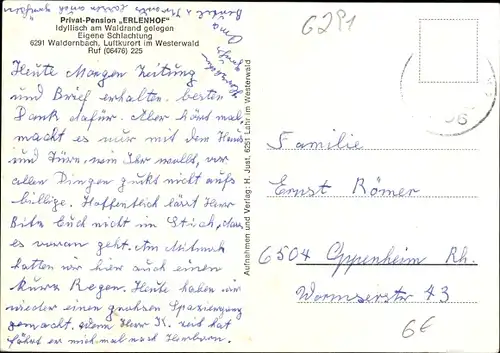 G291
Privat-Pension „ERLENHOF"
Idyllisch am Waldrand gelegen
Eigene Schlachtung
6291 Waldernbach, Luftkurort im Westerwald
Ruf (06476) 225
Oma
Heute Morgen Zeitung
und Brief erhalten. besten
Dank dafür. Aber hört mal,
macht es nur mit dem Haus
und Türn, wie Ihr wollt, vor
allen Dingen gukt nicht aufs
billige. Hoffentlich lärt Herr
Bitz Euch nicht im Stich, das
es voran geht. Am Mitwoch
hatten wir hier auch einen
kurzen Regen. Heute haben wir
wieder einen großsen Spaziergang
gemacht. wenn Herr K. zeit hat
fährt er mich mal nach Herborn.
Aufnahmen und Verlag: H. Just, 6251 Lahr im Westerwald
Familie
Ernst Römer
6504 Oppenheim Rh.
Wormserstr 43
6€